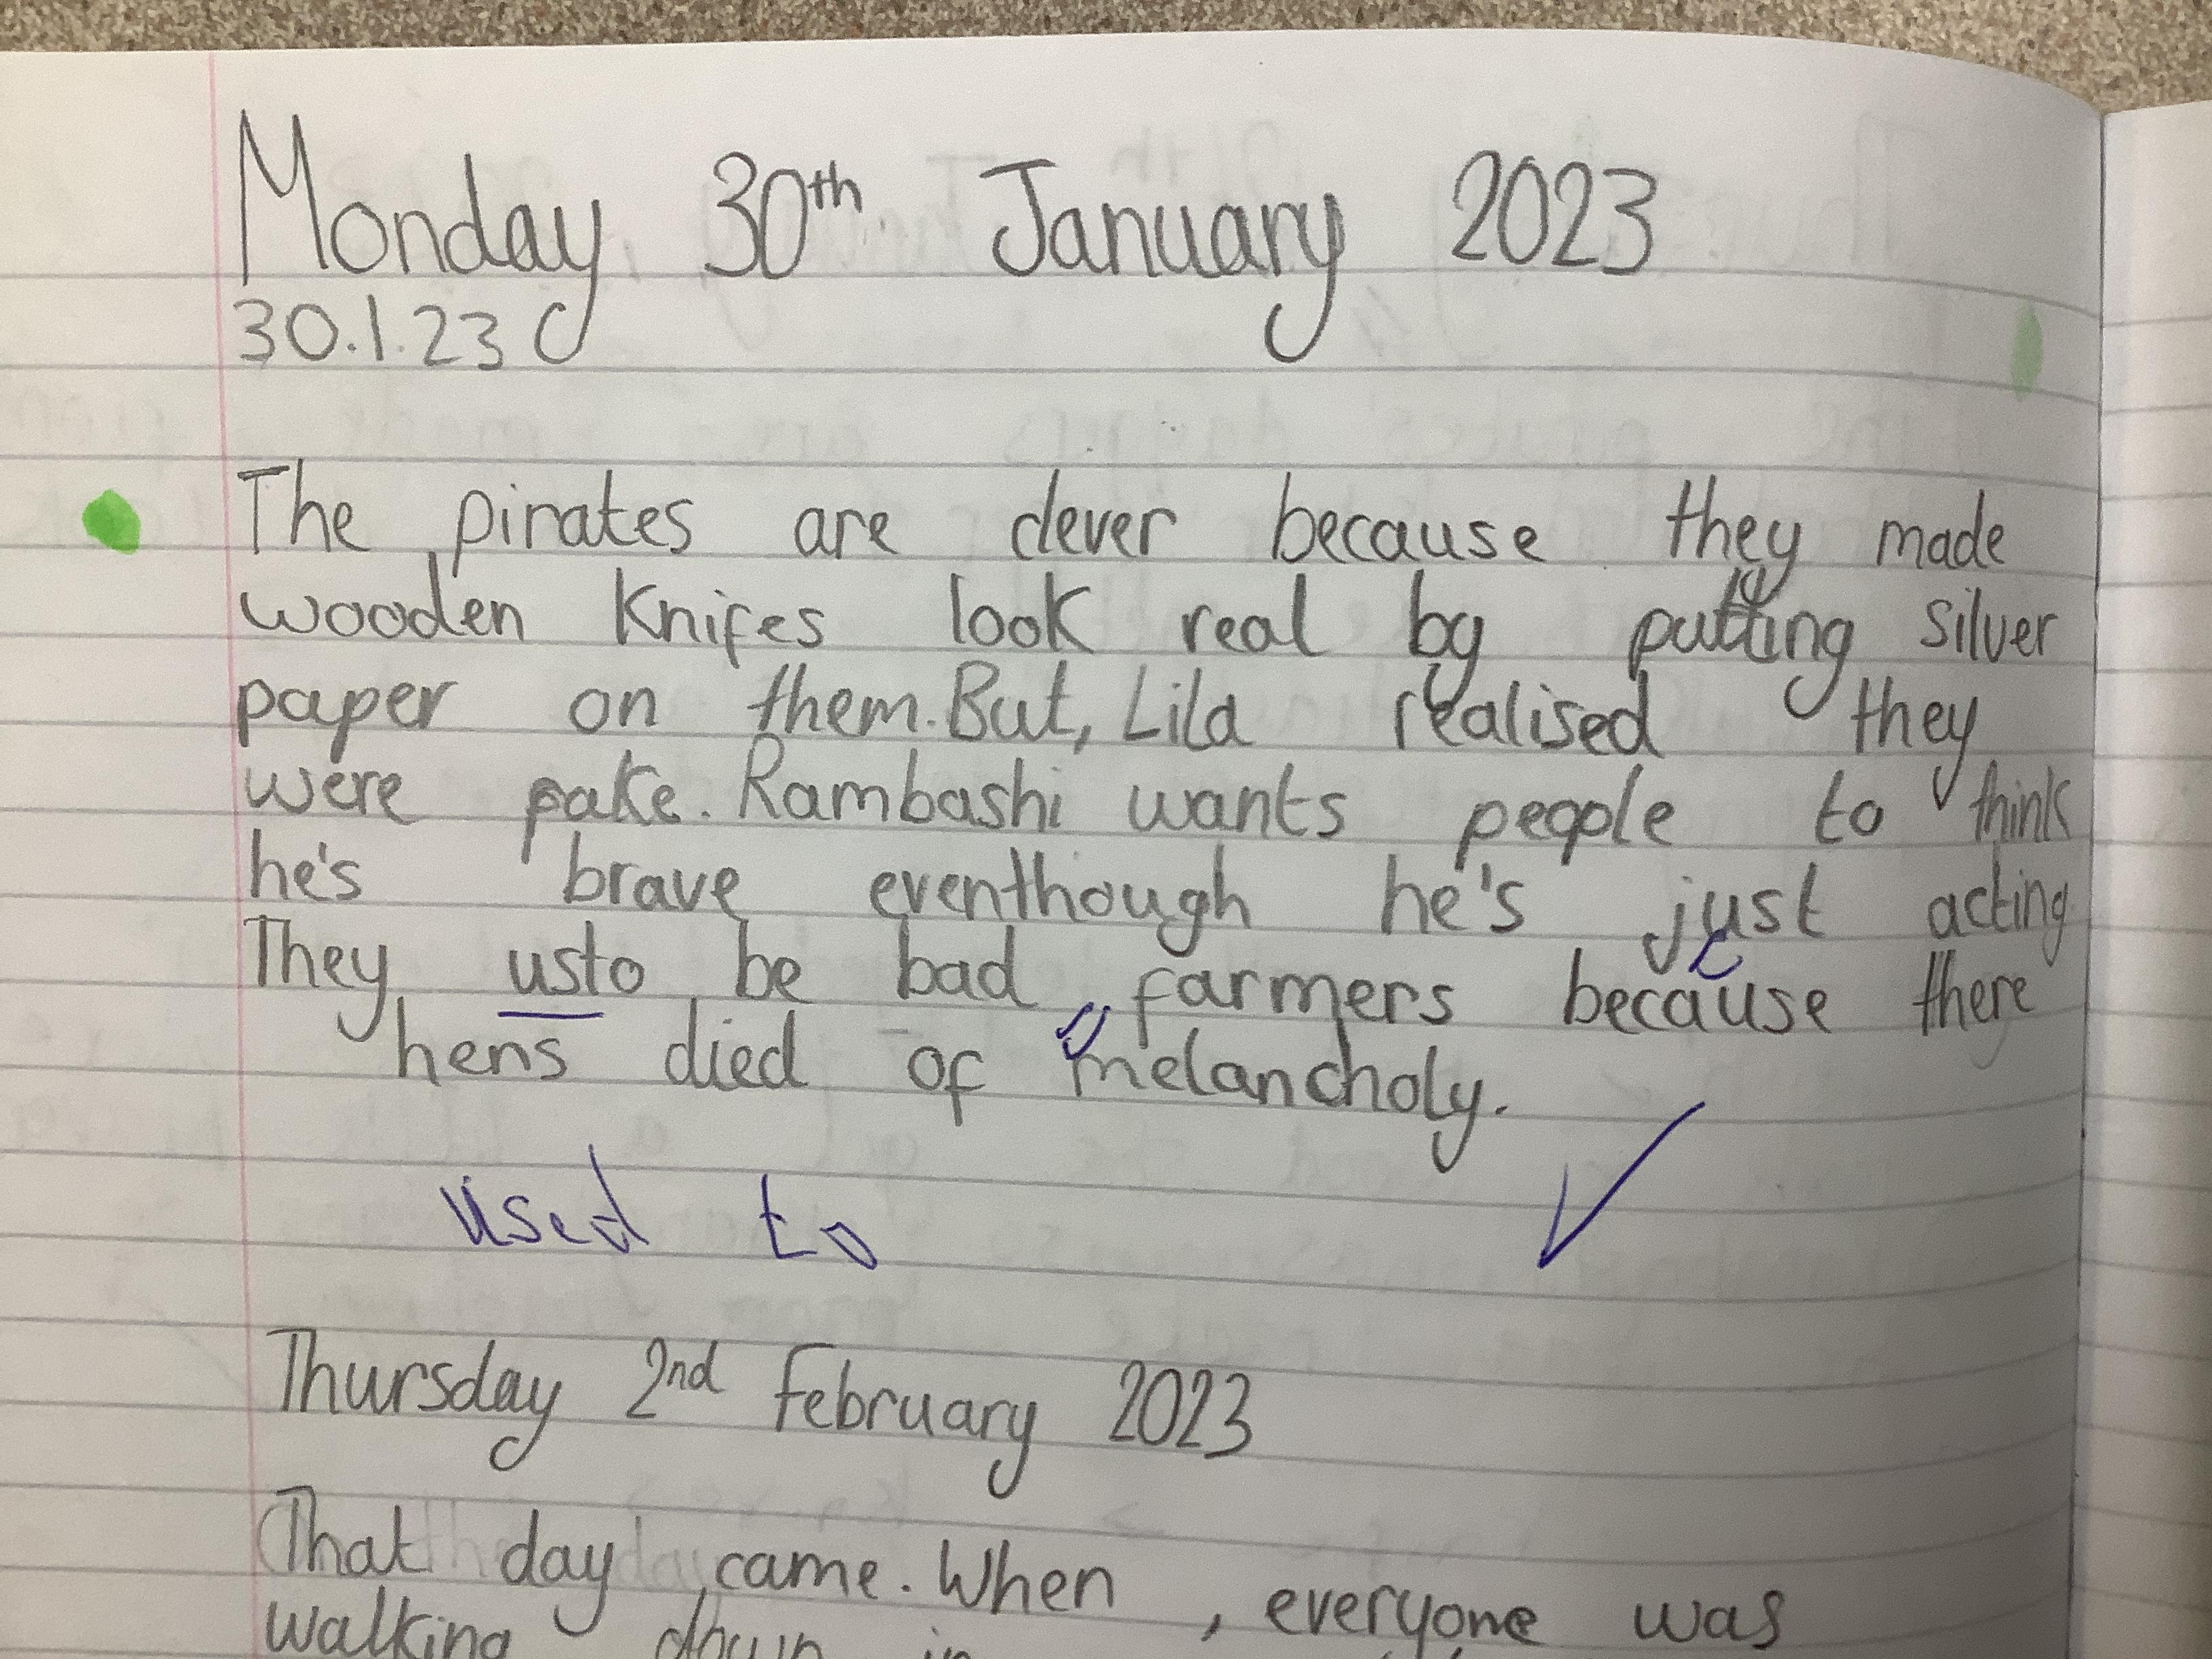 Monday 30th January 2023
30.1.23
The pirates are clever because they made
wooden Knifes look real by putting silver
paper on them. But, Lila realised they
were fake. Rambashi wants people to think
he's brave eventhough he's just acting
They usto be bad farmers because there
hens died of melancholy.
used to
Thursday 2nd February 2023
That day came. When , everyone was
walking down in